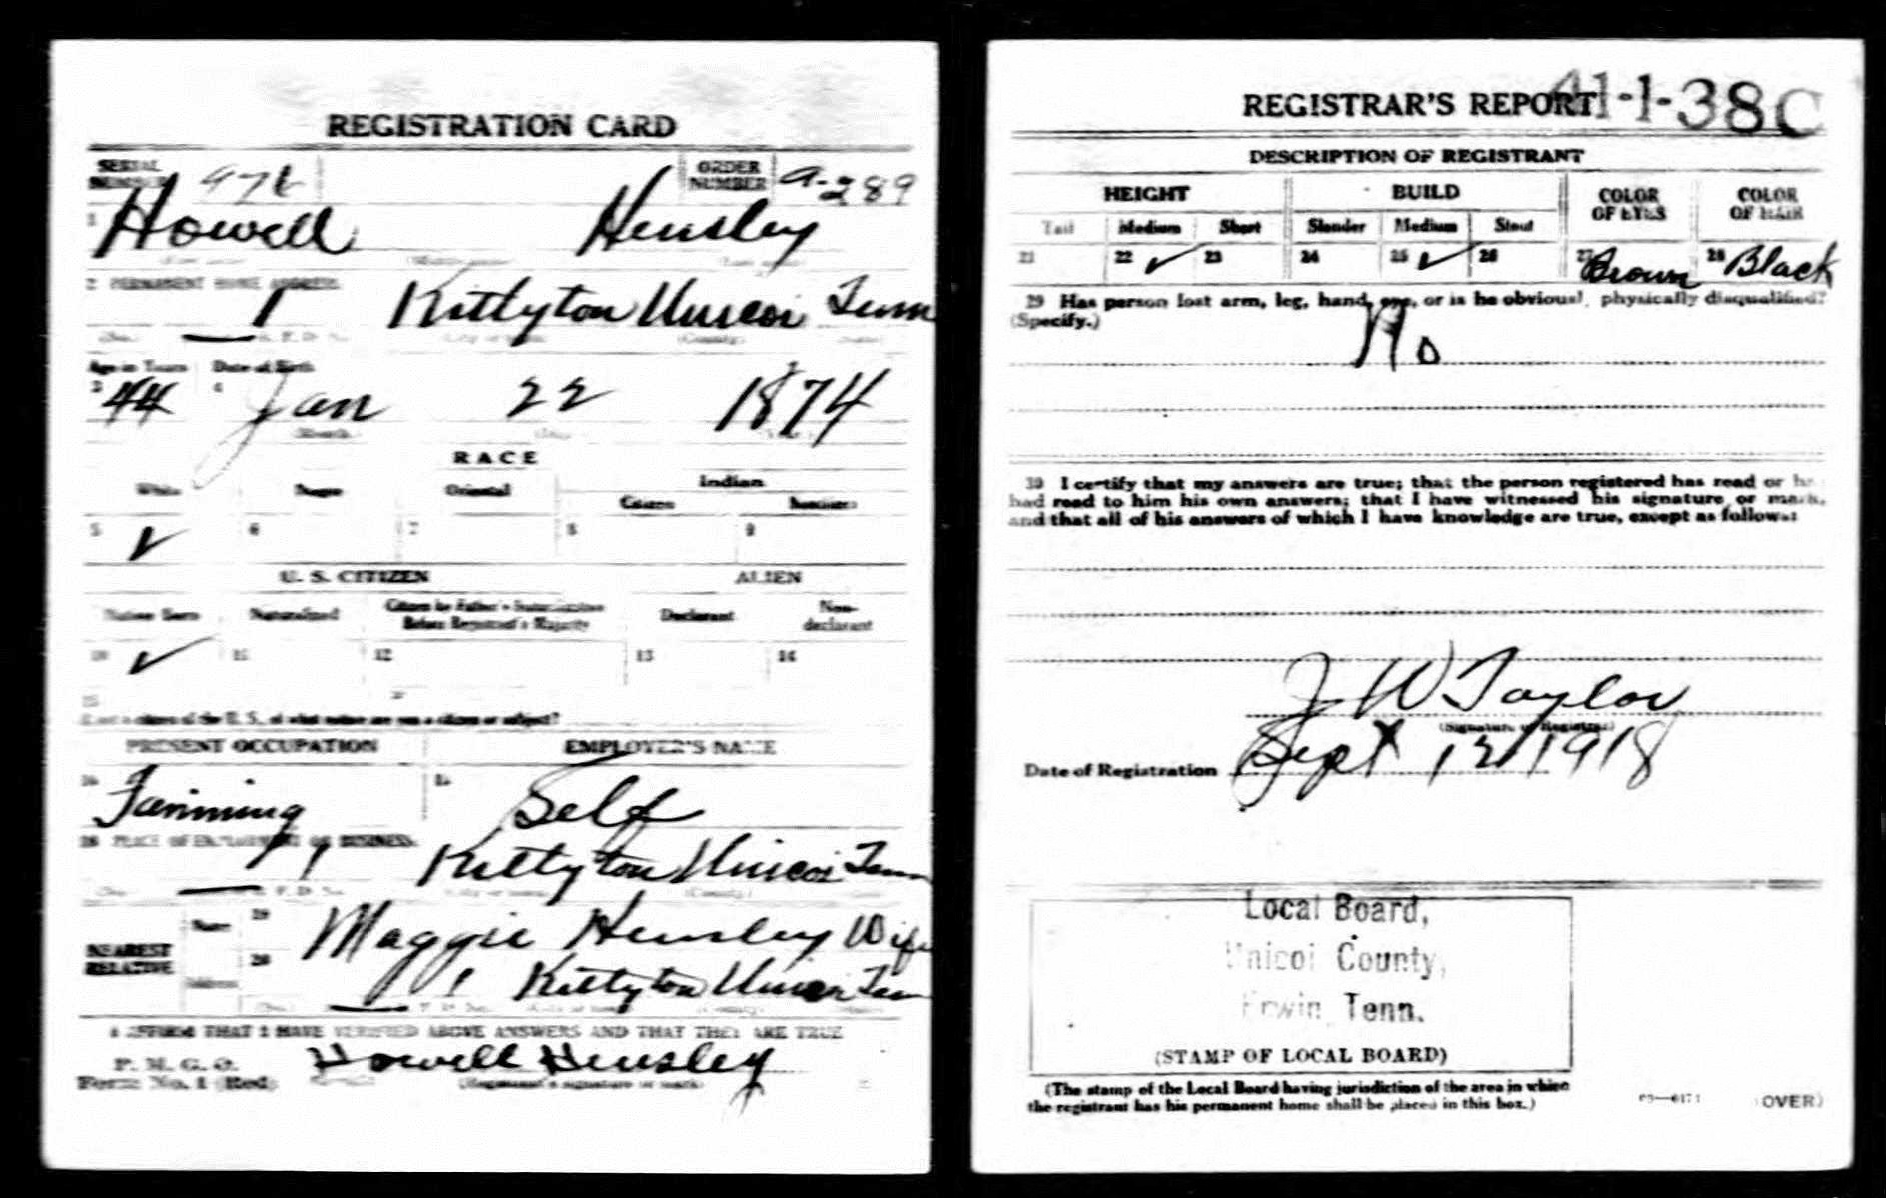 REGISTRATION CARD
SERIAL NUMBER 976 ORDER NUMBER A-289
1 Howell Hensley
(First name) (Middle name) (Last name)
2 PERMANENT HOME ADDRESS:
1 Kittyton Unicoi Tenn
(No.) R. F. D. No. (City or town) (County) (State)
Age in Years Date of Birth
3 44 4 Jan 22 1874
(Month) (Day) (Year)
RACE
White Negro Oriental Indian
Citizen Noncitizen
5 ✓ 6 7 8 9
U. S. CITIZEN ALIEN
Native Born Naturalized Citizen by Father's Naturalization Before Registrant's Majority Declarant Non-declarant
10 ✓ 11 12 13 14
15
If not a citizen of the U. S., of what nation are you a citizen or subject?
PRESENT OCCUPATION EMPLOYER'S NAME
16 Farming Self
18 PLACE OF EMPLOYMENT OR BUSINESS:
1 Kittyton Unicoi Tenn
(No.) R. F. D. No. (City or town) (County) (State)
NEAREST RELATIVE Name 19 Maggie Hensley Wife
Address 20 1 Kittyton Unicoi Tenn
(No.) R. F. D. No. (City or town) (County) (State)
I AFFIRM THAT I HAVE VERIFIED ABOVE ANSWERS AND THAT THEY ARE TRUE
P. M. G. O.
Form No. 1 (Red) Howell Hensley
(Registrant's signature or mark)
REGISTRAR'S REPORT 41-1-38 C
DESCRIPTION OF REGISTRANT
HEIGHT BUILD COLOR OF EYES COLOR OF HAIR
Tall Medium Short Slender Medium Stout
21 22 ✓ 23 24 25 ✓ 26 27 Brown 28 Black
29 Has person lost arm, leg, hand, eye, or is he obviously physically disqualified?
(Specify.) No
30 I certify that my answers are true; that the person registered has read or has
had read to him his own answers; that I have witnessed his signature or mark,
and that all of his answers of which I have knowledge are true, except as follows:
J W Taylor
(Signature of Registrar)
Date of Registration Sept 12 1918
Local Board,
Unicoi County,
Erwin Tenn.
(STAMP OF LOCAL BOARD)
(The stamp of the Local Board having jurisdiction of the area in which
the registrant has his permanent home shall be placed in this box.)
03—6171 (OVER)